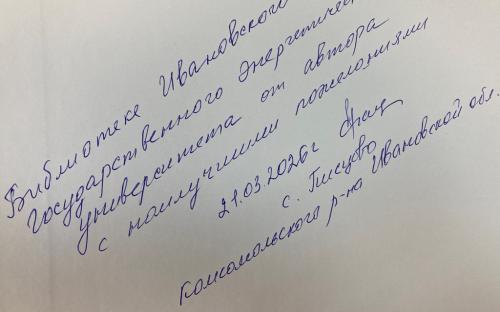 Библиотеке Ивановского
государственного Энергетическ
университета от автора
с наилучшими пожеланиями
21.03.2026г
с. Писцово
Комсомольского р-на Ивановской обл.